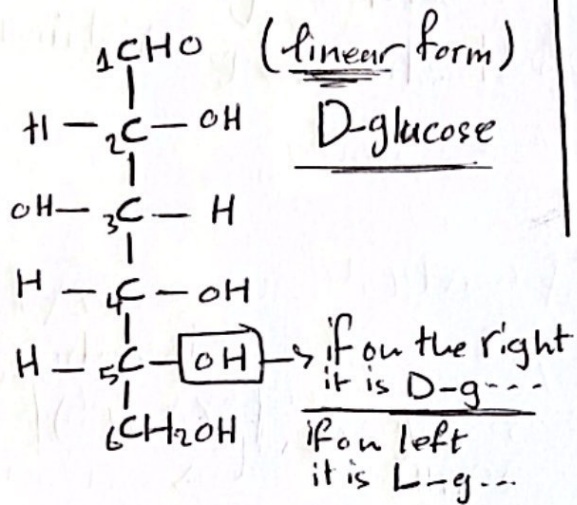 1CHO (linear form)
H — 2C — OH D-glucose
OH — 3C — H
H — 4C — OH
H — 5C — OH → if on the right
it is D-g----
6CH2OH if on left
it is L-g---